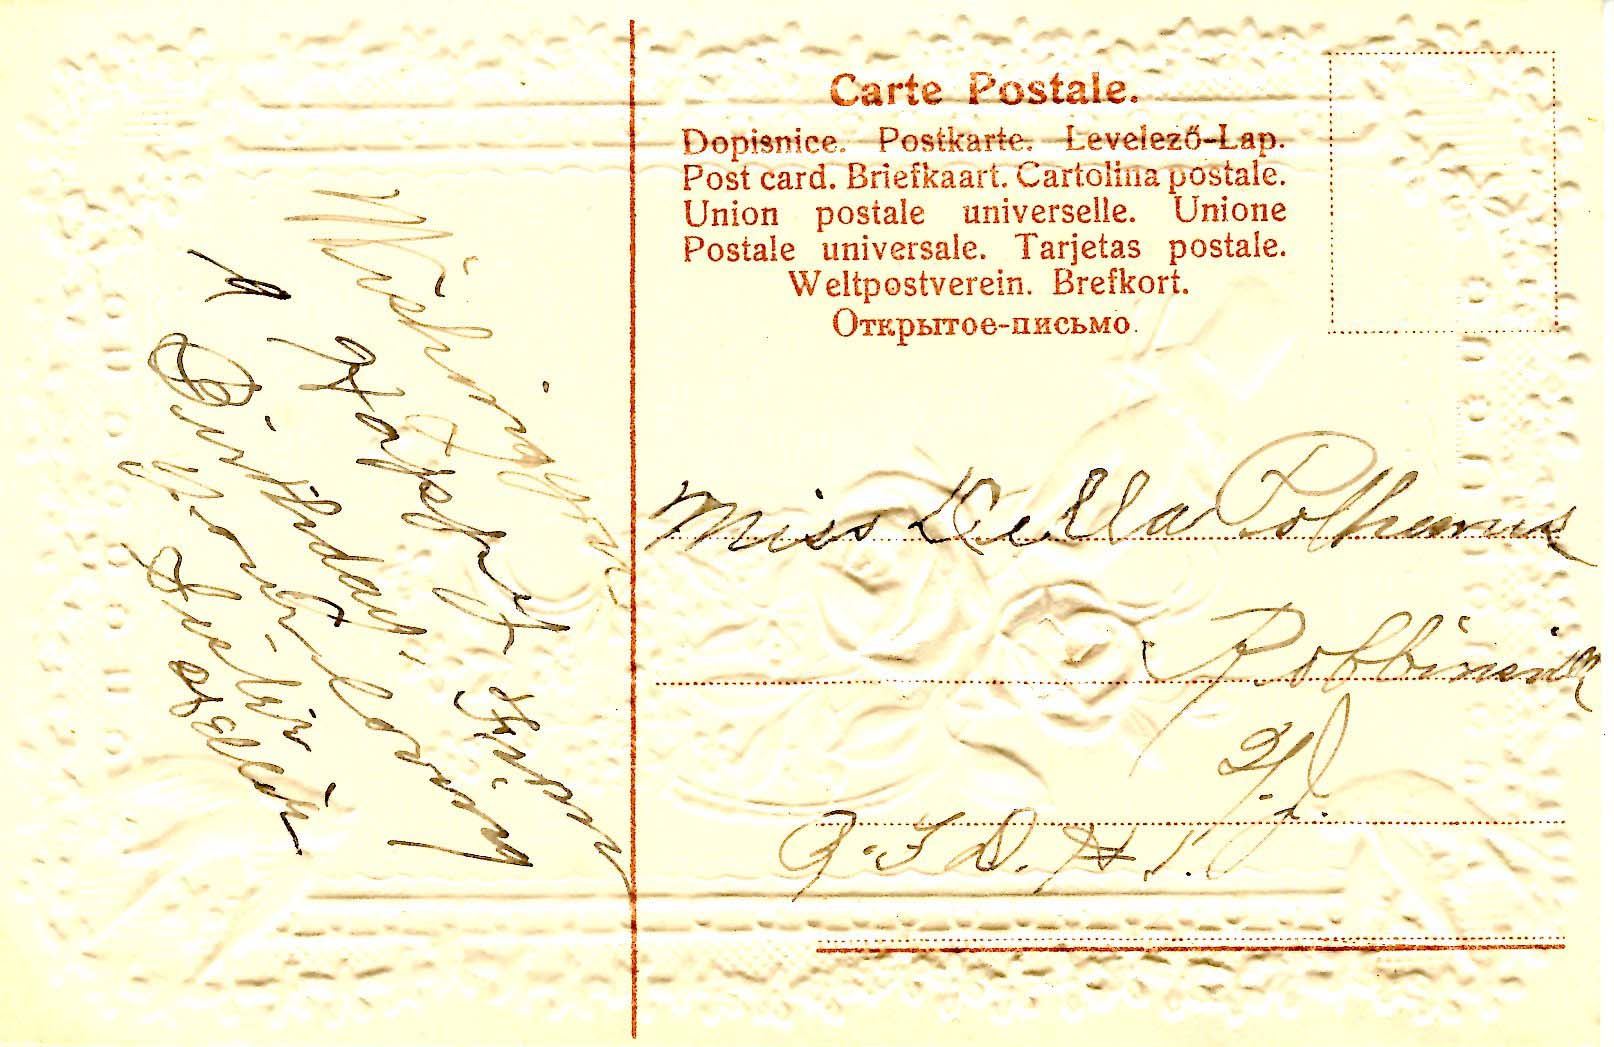 Carte Postale.
Dopisnice. Postkarte. Levelező-Lap.
Post card. Briefkaart. Cartolina postale.
Union postale universelle. Unione
Postale universale. Tarjetas postale.
Weltpostverein. Brefkort.
Открытое-письмо.
Wishing you
A Happy
Birthday
Your loving
Sister
Miss Della Polhemus
Robbinsville
N.J.
R.F.D. # 1.